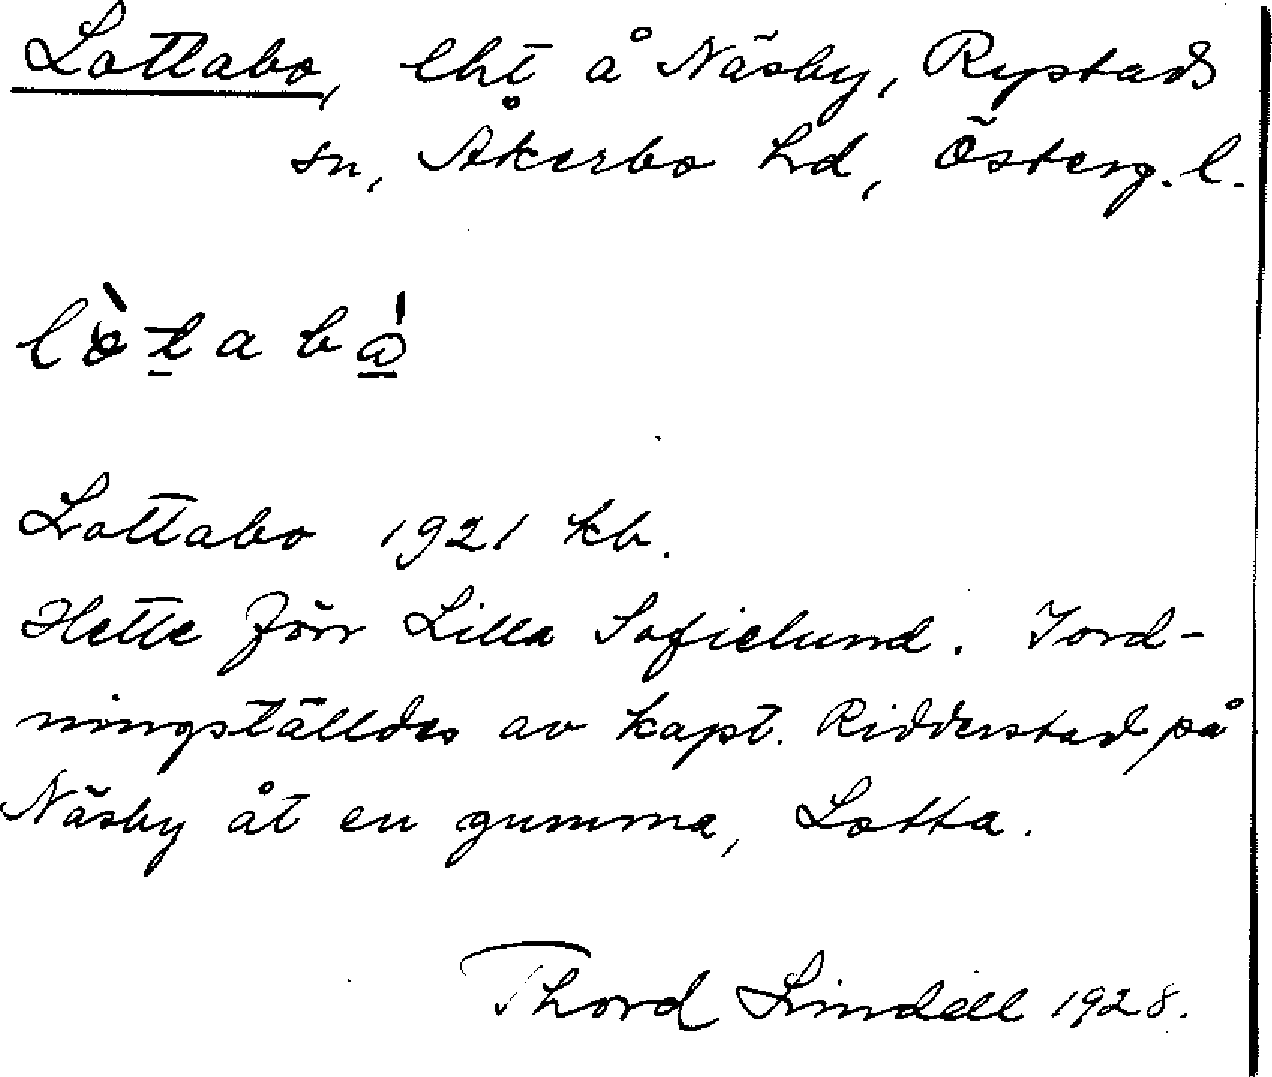 Lottabo, lht å Näsby, Rystads
sn, Åkerbo hd, Österg. l.
lòtabǻ
Lottabo 1921 kb.
Hette förr Lilla Sofielund. Iord-
ningställdes av kapt. Ridderstad på
Näsby åt en gumma, Lotta.
Thord Lindell 1928.